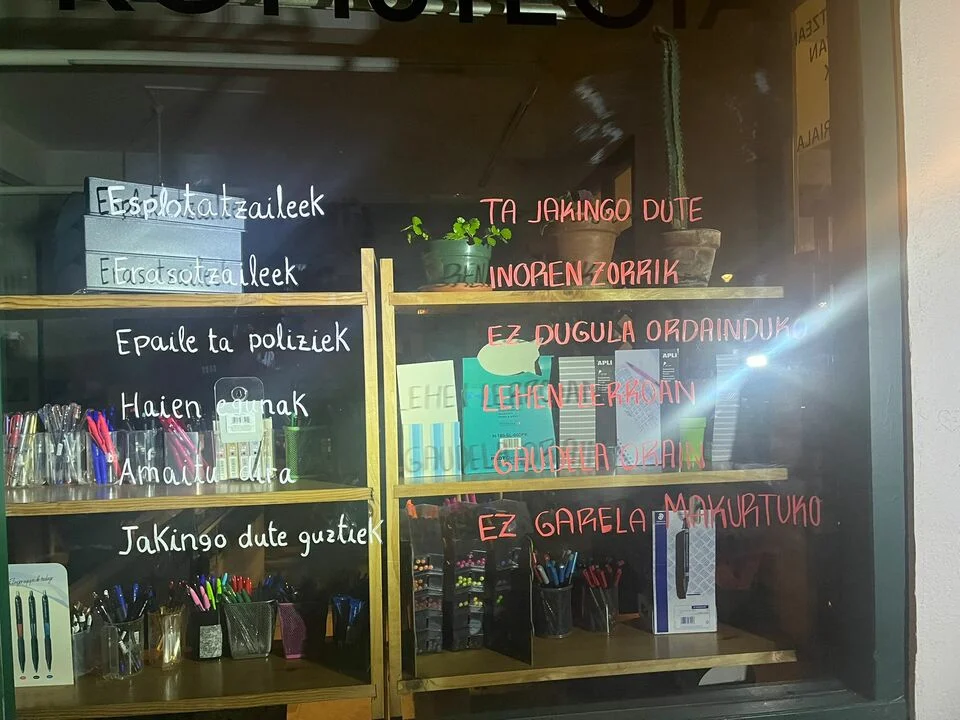 KOPISTEGIA
Esplotatzaileek
Faszistzaileek
Epaile ta poliziek
Haien egunak
Amaitu dira
Jakingo dute guztiek
TA JAKINGO DUTE
INOREN ZORRIK
EZ DUGULA ORDAINDUKO
LEHEN LERROAN
GAUDELA ORAIN
EZ GARELA MAKURTUKO
APLI
APLI